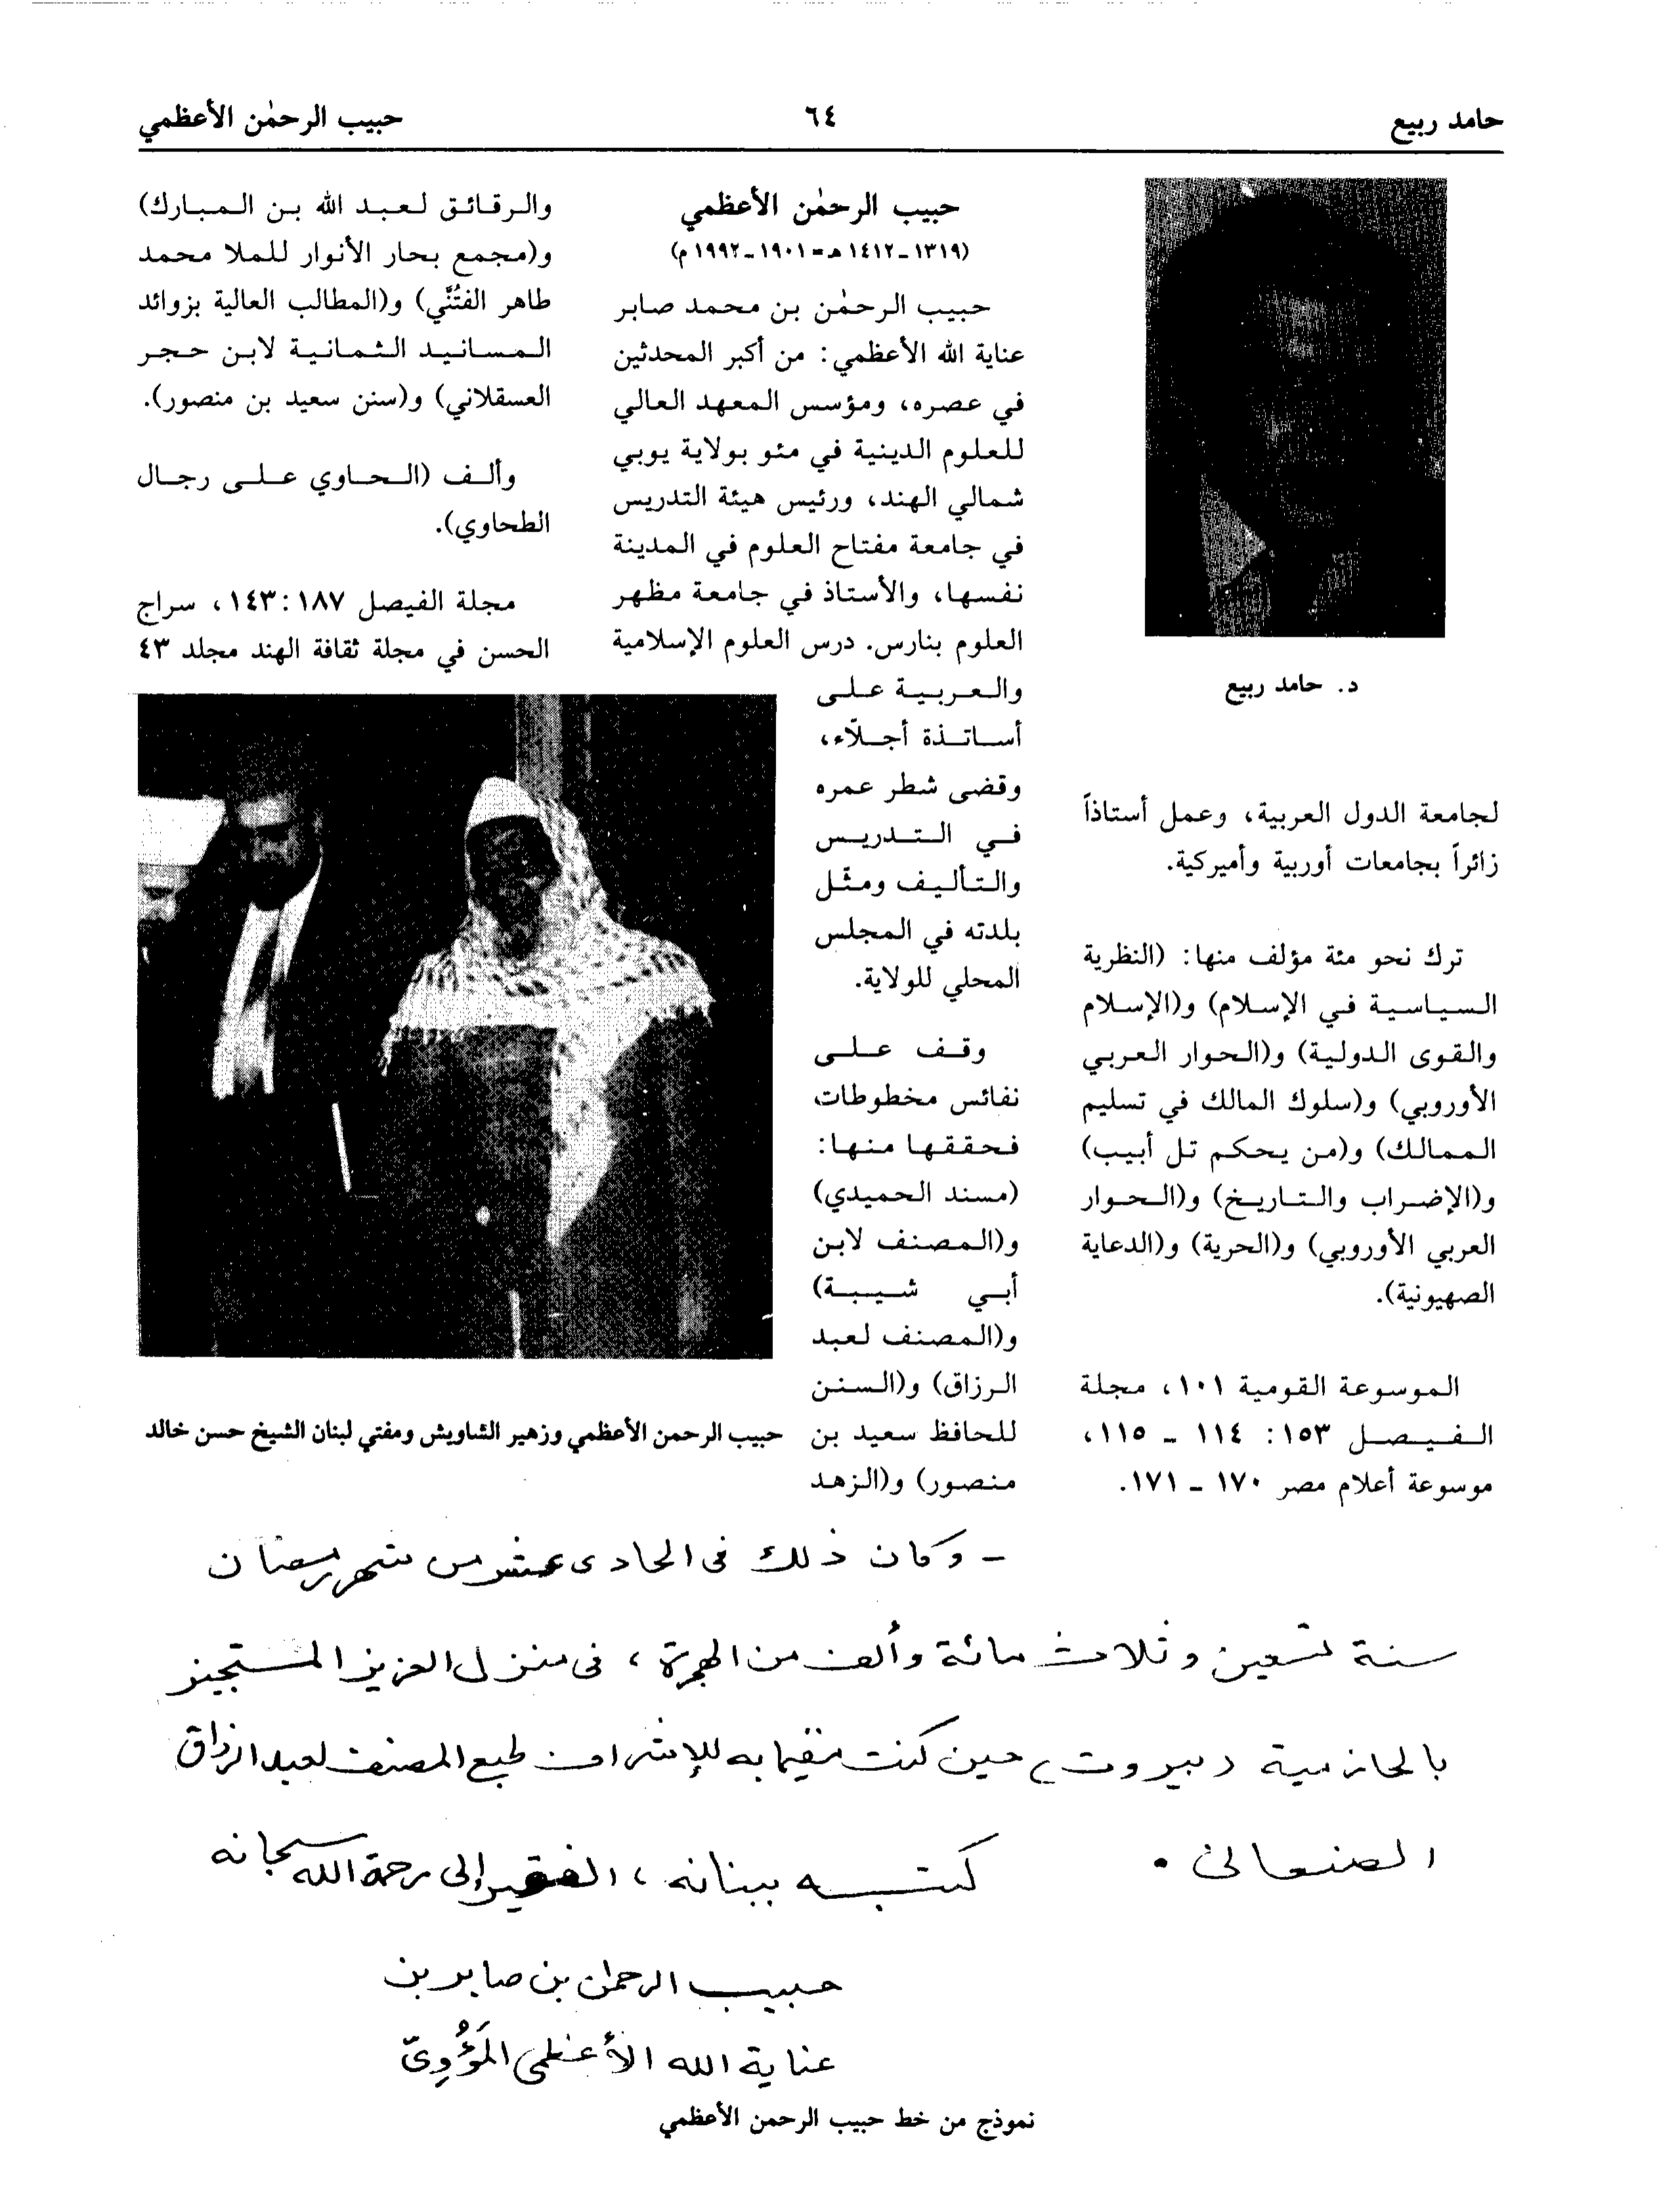 حامد ربيع
٦٤
حبيب الرحمٰن الأعظمي
د. حامد ربيع
لجامعة الدول العربية، وعمل أستاذاً
زائراً بجامعات أوربية وأميركية.
ترك نحو مئة مؤلف منها: (النظرية
السياسية في الإسلام) و(الإسلام
والقوى الدولية) و(الحوار العربي
الأوروبي) و(سلوك المالك في تسليم
الممالك) و(من يحكم تل أبيب)
و(الإضراب والتاريخ) و(الحوار
العربي الأوروبي) و(الحرية) و(الدعاية
الصهيونية).
الموسوعة القومية ١٠١، مجلة
الفيصل ١٥٣: ١١٤ - ١١٥،
موسوعة أعلام مصر ١٧٠ - ١٧١.
حبيب الرحمٰن الأعظمي
(١٣١٩-١٤١٢هـ=١٩٠١-١٩٩٢م)
حبيب الرحمٰن بن محمد صابر
عناية الله الأعظمي: من أكبر المحدثين
في عصره، ومؤسس المعهد العالي
للعلوم الدينية في مئو بولاية يوبي
شمالي الهند، ورئيس هيئة التدريس
في جامعة مفتاح العلوم في المدينة
نفسها، والأستاذ في جامعة مظهر
العلوم بنارس. درس العلوم الإسلامية
والعربية على
أساتذة أجلّاء،
وقضى شطر عمره
في التدريس
والتأليف ومثّل
بلدته في المجلس
المحلي للولاية.
وقف على
نفائس مخطوطات
فحققها منها:
(مسند الحميدي)
و(المصنف لابن
أبي شيبة)
و(المصنف لعبد
الرزاق) و(السنن
للحافظ سعيد بن
منصور) و(الزهد
والرقائق لعبد الله بن المبارك)
و(مجمع بحار الأنوار للملا محمد
طاهر الفتُنَّي) و(المطالب العالية بزوائد
المسانيد الثمانية لابن حجر
العسقلاني) و(سنن سعيد بن منصور).
وألف (الحاوي على رجال
الطحاوي).
مجلة الفيصل ١٨٧: ١٤٣، سراج
الحسن في مجلة ثقافة الهند مجلد ٤٣
حبيب الرحمن الأعظمي وزهير الشاويش ومفتي لبنان الشيخ حسن خالد
- وكان ذلك فى الحادى عشر من شهر رمضان
سنة تسعين وثلاث مائة وألف من الهجرة، فى منزل العزيز المستجيز
بالحازمية (بيروت) حين كنت مقيما به للإشراف طبع المصنف لعبد الرزاق
الصنعانى.
كتبه ببنانه، الفقير إلى رحمة الله سبحانه
حبيب الرحمٰن بن صابر بن
عناية الله الأعظمى المَؤُوِىّ
نموذج من خط حبيب الرحمن الأعظمي